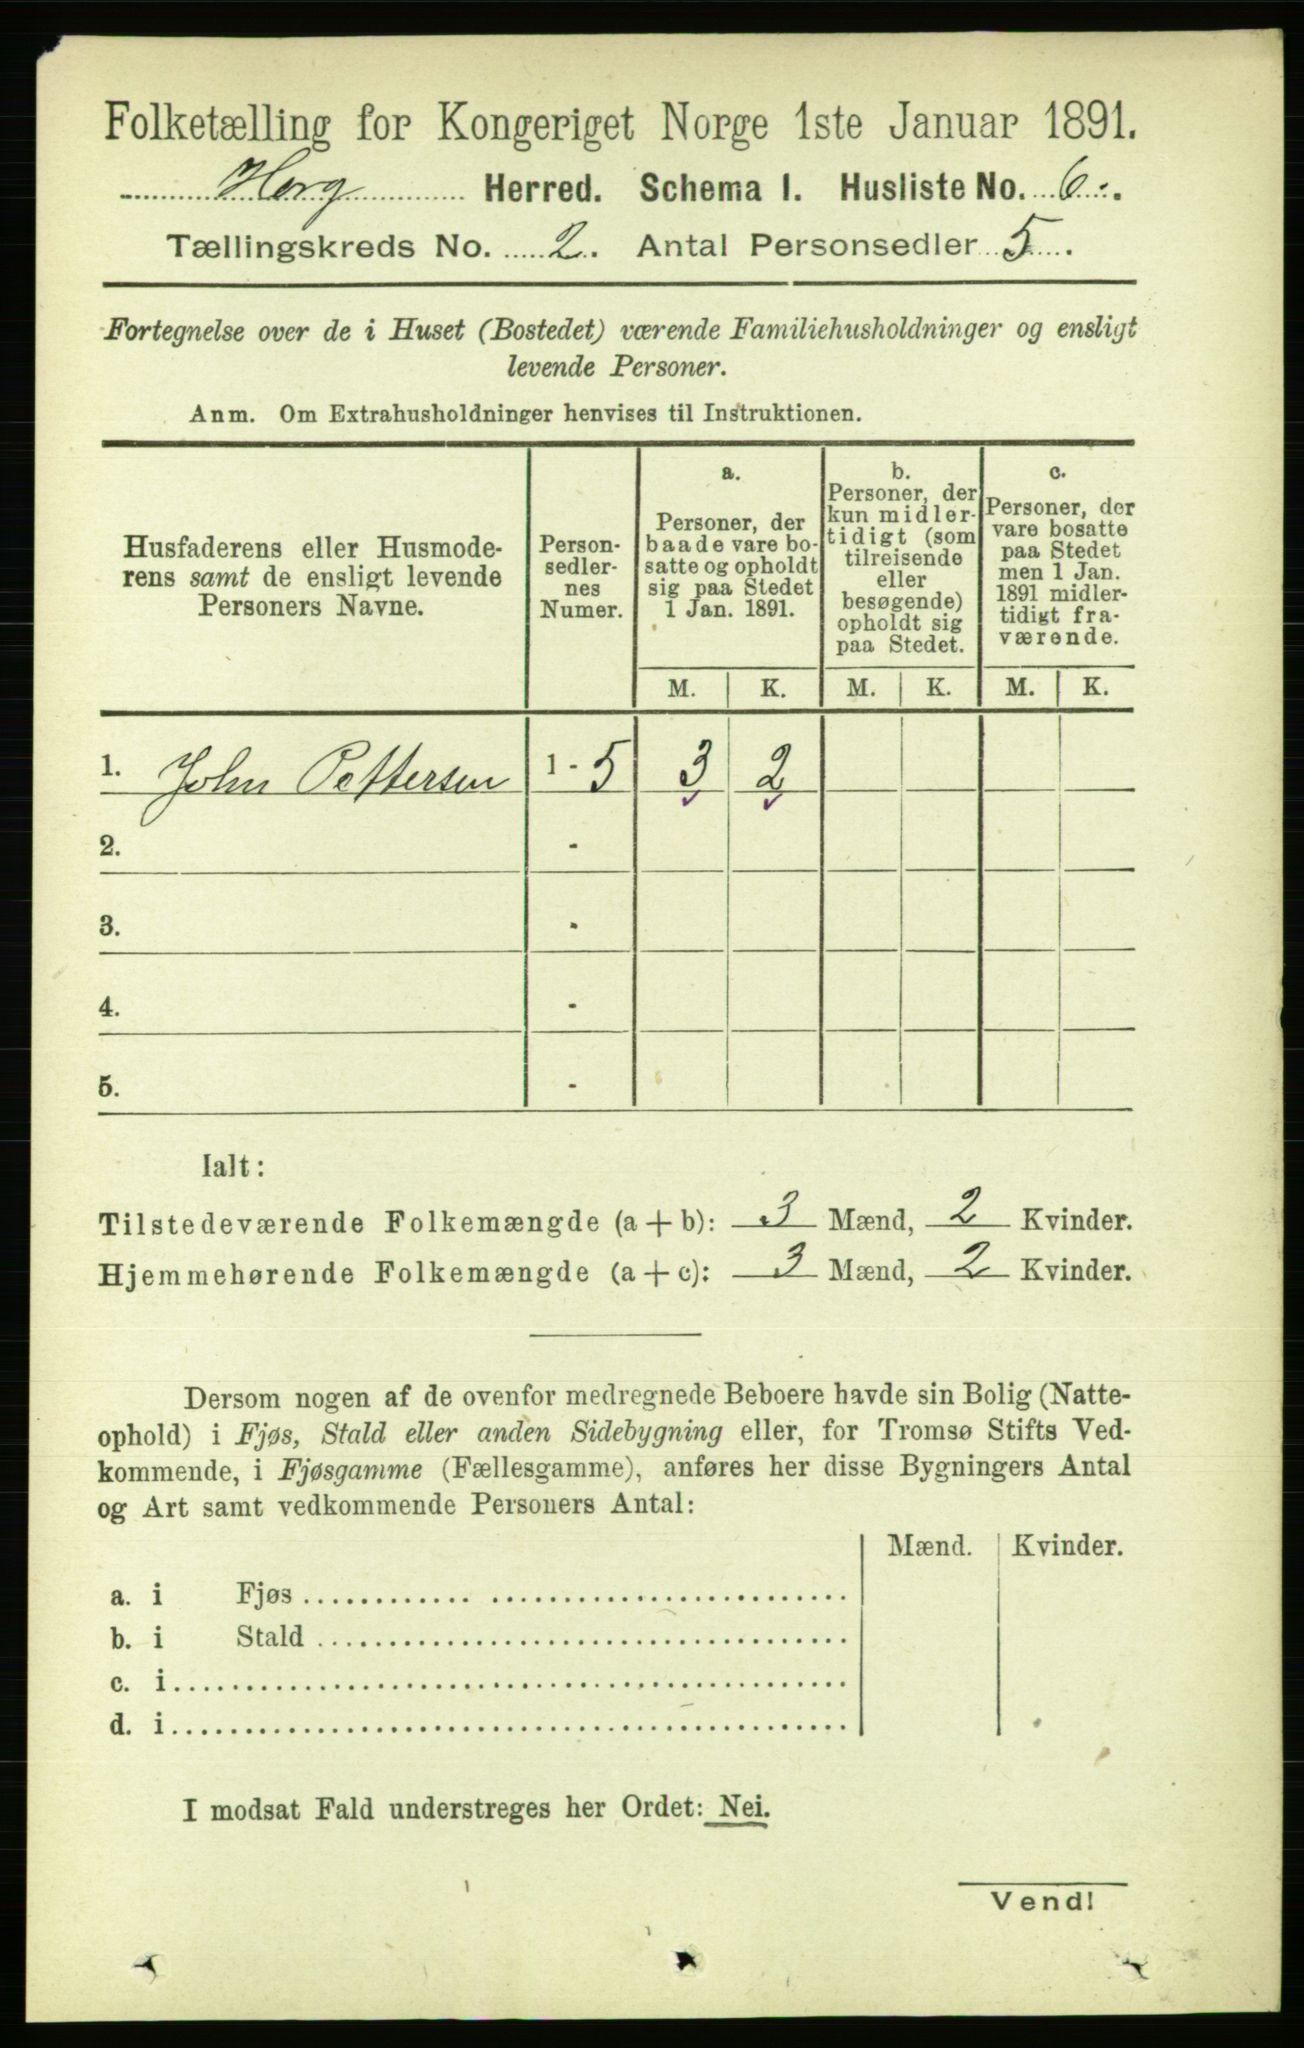 Folketælling for Kongeriget Norge 1ste Januar 1891.
Horg Herred. Schema I. Husliste No. 6.
Tællingskreds No. 2. Antal Personsedler 5.
Fortegnelse over de i Huset (Bostedet) værende Familiehusholdninger og ensligt
levende Personer.
Anm. Om Extrahusholdninger henvises til Instruktionen.
Husfaderens eller Husmode-
rens samt de ensligt levende
Personers Navne.
Person-
sedler-
nes
Numer.
a.
Personer, der
baade vare bo-
satte og opholdt
sig paa Stedet
1 Jan. 1891.
b.
Personer, der
kun midler-
tidigt (som
tilreisende
eller
besøgende)
opholdt sig
paa Stedet.
c.
Personer, der
vare bosatte
paa Stedet
men 1 Jan.
1891 midler-
tidigt fra-
værende.
M. K. M. K. M. K.
1. John Pettersen 1 - 5 3 2
2. -
3. -
4. -
5. -
Ialt:
Tilstedeværende Folkemængde (a + b): 3 Mænd, 2 Kvinder.
Hjemmehørende Folkemængde (a + c): 3 Mænd, 2 Kvinder.
Dersom nogen af de ovenfor medregnede Beboere havde sin Bolig (Natte-
ophold) i Fjøs, Stald eller anden Sidebygning eller, for Tromsø Stifts Ved-
kommende, i Fjøsgamme (Fællesgamme), anføres her disse Bygningers Antal
og Art samt vedkommende Personers Antal:
Mænd. Kvinder.
a. i Fjøs
b. i Stald
c. i
d. i
I modsat Fald understreges her Ordet: Nei.
Vend!